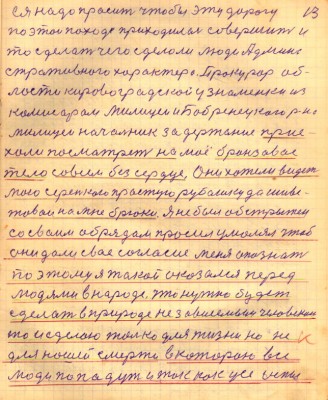 13
ся надо просит чтобы эту дорогу
по этой походе приходилая совершит и
то сделат чего сделоли люди Админи
стративного характера. Прокурор об-
ласти кировоградской у знаменки из
комисаром Милиции и Бобренецкого р-на
милиции началник задержание прие-
холи посматрет на моё бронзавае
тело совсем без сердце. Они хотели видет
мою серенкою простую рубашку да шиве-
товаи на мне брюки. Я не был обстрыжен
со своим обрядам просил умолял чтоб
они дали свае согласие меня опознат
по этому я такой оказался перед
людями в народе. Что нужно будет
сделат в природе независимым человеком
то и сделаю толко для жизни но не
для нашей смерти в которою все
люди попадут и так как усе